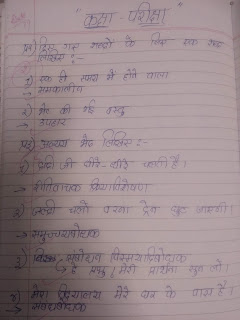 " कक्षा - परीक्षा "
प्र1) दिए गए शब्दों के लिए एक शब्द
लिखिए :-
1) एक ही समय में होने वाला
→ समकालीन
2) भेंट की गई वस्तु
→ उपहार
प्र2) अव्यय भेद लिखिए :-
1) धीरे-धीरे चलती है।
→ रीतिवाचक क्रियाविशेषण
2) जल्दी चलो वरना ट्रेन छूट जाएगी।
→ समुच्चयबोधक
3) संबोधन विस्मयादिबोधक
→ हे प्रभु ! मेरी प्रार्थना सुन लो।
4) मेरा विद्यालय मेरे घर के पास है।
→ संबंधबोधक